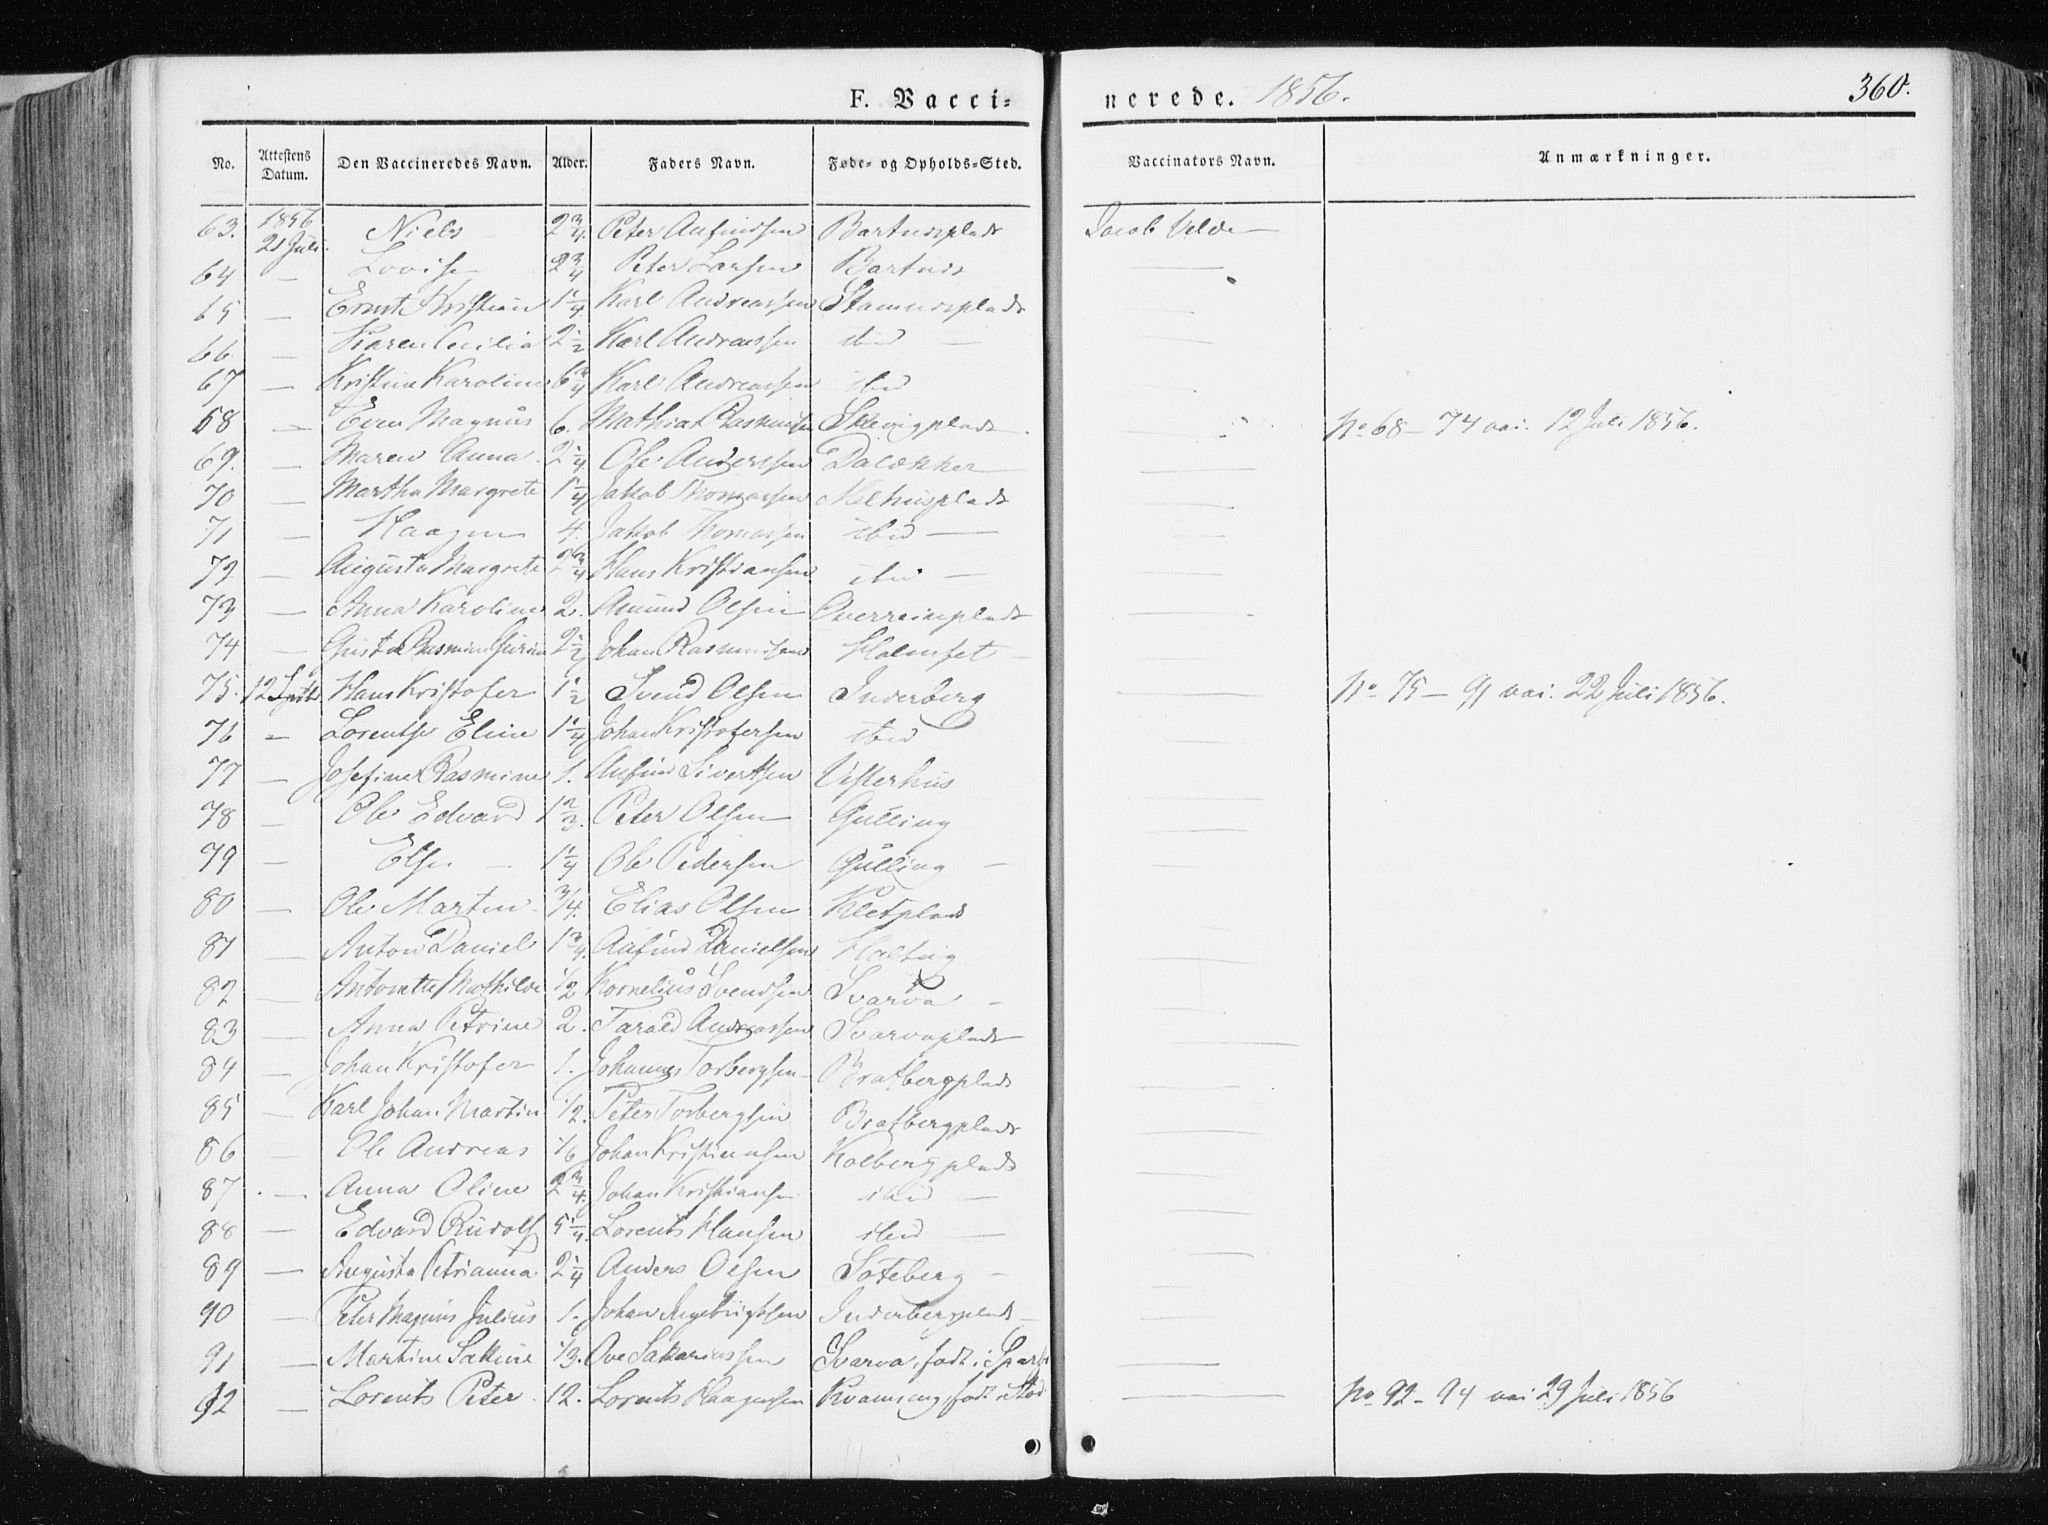 F. Vacci-
nerede. 1856.
360.
No. Attestens Datum. Den Vaccineredes Navn. Alder. Faders Navn. Føde- og Opholds-Sted. Vaccinators Navn. Anmærkninger.
63. 1856 21 Juli Niels 2 3/4 Peter Anfindsen Bartnesplads Jacob Velde
64 — Lovise 2 3/4 Peter Larsen Bartnes —
65 — Ernst Kristian 1 1/4 Karl Andreassen Stamnesplads —
66. — Karen Cecilia 2 1/2 Karl Andreassen ibid — —
67 — Kristine Karoline 6 3/4 Karl Andreassen ibid —
68 — Even Magnus 6. Mathias Rasmussen Skevigplads No 68 – 74 vac. 12 Juli 1856.
69. — Maren Anna 2 1/4 Ole Anderssen —
70 — Martha Margrete 1 1/4 Jakob Thomassen Melhusplads —
71 — Haagen 4. Jakob Thomassen ibid — —
72 — Augusta Margrete 2 3/4 Hans Kristiansen ibid — —
73 — Anna Karoline 2. Amund Olsen Overreinplads —
74 — Rasmine 2 1/2 Johan Rasmussen —
75. 12 Septb Hans Kristofer 1 1/2 Svend Olsen Inderberg — No 75 – 91 vac. 22 Juli 1856.
76 – Lorentse Eline 1 1/4 Johan Kristofersen ibid —
77 — Josefine Rasmine 1. Anfind Sivertsen Vesterhus —
78 — Ole Edvard 1 2/3. Peter Olsen Gulling —
79 — Else — 1 1/4 Ole Pedersen Gulling — —
80 — Ole Martin 3/4. Elias Olsen Kletplads —
81 — Anton Daniel 1 3/4. Anfind Danielsen —
82 — Antonette Mathilde 1/2 Kornelius Svendsen Svarva — —
83 — Anna Petrine 2. Tarald Andreassen Svarvaplads —
84 — Johan Kristofer 1. Johannes Torbergsen Bratbergplads —
85 — Karl Johan Martin 1/2. Peter Torbergsen Bratbergplads —
86 — Ole Andreas 1/6 Johan Kristiansen Kolbergplads —
87 . — Anna Oline 2 3/4. Johan Kristiansen ibid — —
88 — Edvard Rudolf 5 1/4. Lorents Hansen ibid — —
89 — Augusta Petrianna 2 1/4 Anders Olsen Soteberg — —
90 — Peter Magnus Julius 1. Johan Ingebrigtsen Inderbergplads —
91 — Martine Sakine 1/3. Ove Sakariassen Svarva, født i —
92 — Lorents Peter 12. Lorents Haagensen født i Stod — No 92 – 94 vac 29 Juli 1856